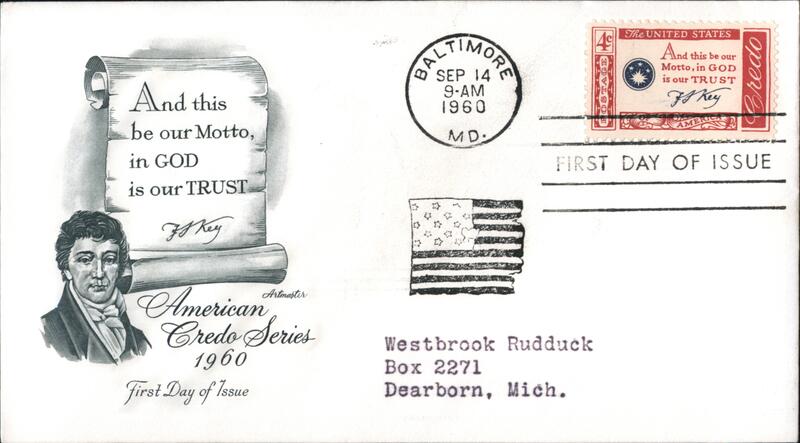 And this
be our Motto,
in GOD
is our TRUST
F S Key
Artmaster
American
Credo Series
1960
First Day of Issue
BALTIMORE
SEP 14
9-AM
1960
MD.
4¢
The UNITED STATES
POSTAGE
And this be our
Motto, in GOD
is our TRUST
F S Key
OF AMERICA
Credo
FIRST DAY OF ISSUE
Westbrook Rudduck
Box 2271
Dearborn, Mich.